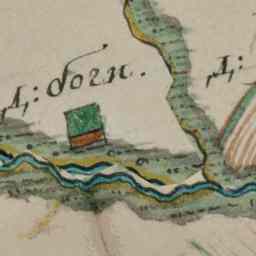 Д: боги.
Д: